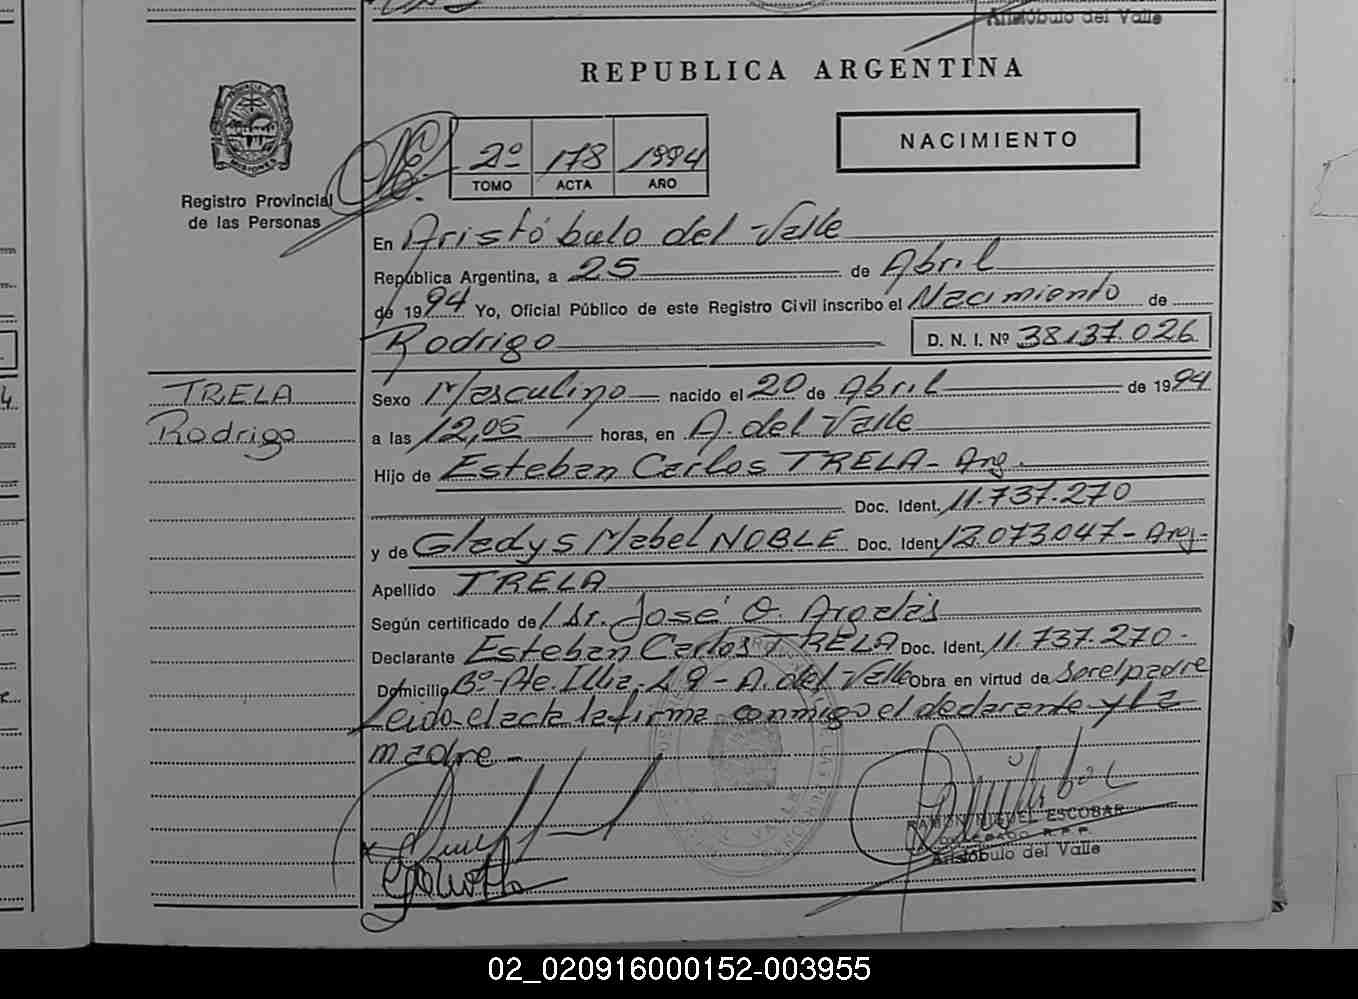 Aristóbulo del Valle
REPUBLICA ARGENTINA
NACIMIENTO
2º 178 1994
TOMO ACTA AÑO
Registro Provincial
de las Personas
En Aristóbulo del Valle
República Argentina, a 25 de Abril
de 1994 Yo, Oficial Público de este Registro Civil inscribo el Nacimiento de
Rodrigo D. N. I. Nº 38.137.026
TRELA
Rodrigo
Sexo Masculino nacido el 20 de Abril de 1994
a las 12,05 horas, en A. del Valle
Hijo de Esteban Carlos TRELA - Arg.
Doc. Ident. 11.737.270
y de Gladys Mabel NOBLE Doc. Ident 12.073.047 - Arg.-
Apellido TRELA
Según certificado de Dr. José O.
Declarante Esteban Carlos TRELA Doc. Ident. 11.737.270.-
Domicilio Bº- Pte. Illia - A. del Valle Obra en virtud de ser el padre
Leida el acta la firma conmigo el declarante y la
madre -
RAMON MIGUEL ESCOBAR
DELEGADO R.P.P.
Aristóbulo del Valle
02_020916000152-003955